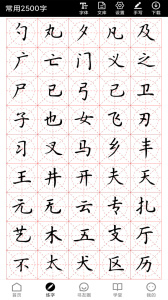 常用2500字 字体 文库 设置 手写 下载
勺 丸 夕 凡 及
广 亡 门 义 之
尸 已 弓 己 卫
子 也 女 飞 刃
习 叉 马 乡 丰
王 井 开 夫 天
元 无 云 专 扎
艺 木 五 支 厅
不 太 犬 区 历
首页 练字 书友圈 学堂 我的